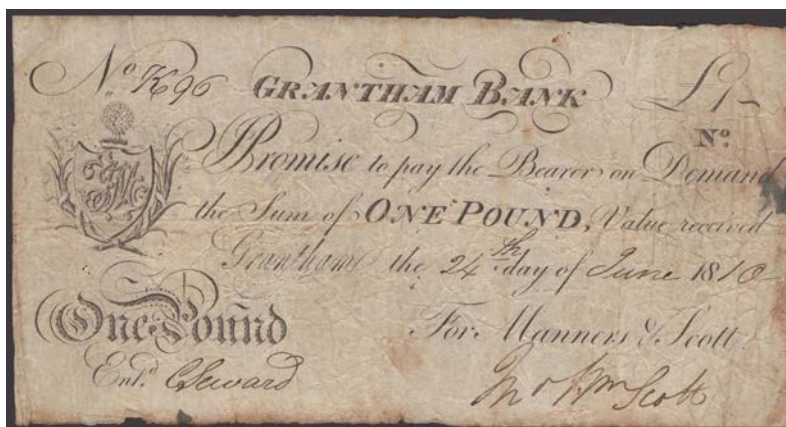 No K96 GRANTHAM BANK £1-
No
Promise to pay the Bearer on Demand
the Sum of ONE POUND, Value received
Grantham the 24th day of June 1810
One Pound For Manners & Scott
Entd. C Seward Jno Wm Scott